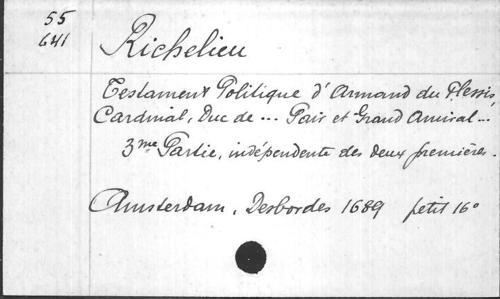 55
641
Richelieu
Testament Politique d'Armand du Plessis
Cardinal, Duc de ... Pair et Grand Amiral ...
3me Partie, indépendente des deux premières.
Amsterdam, Desbordes 1689 petit 16°